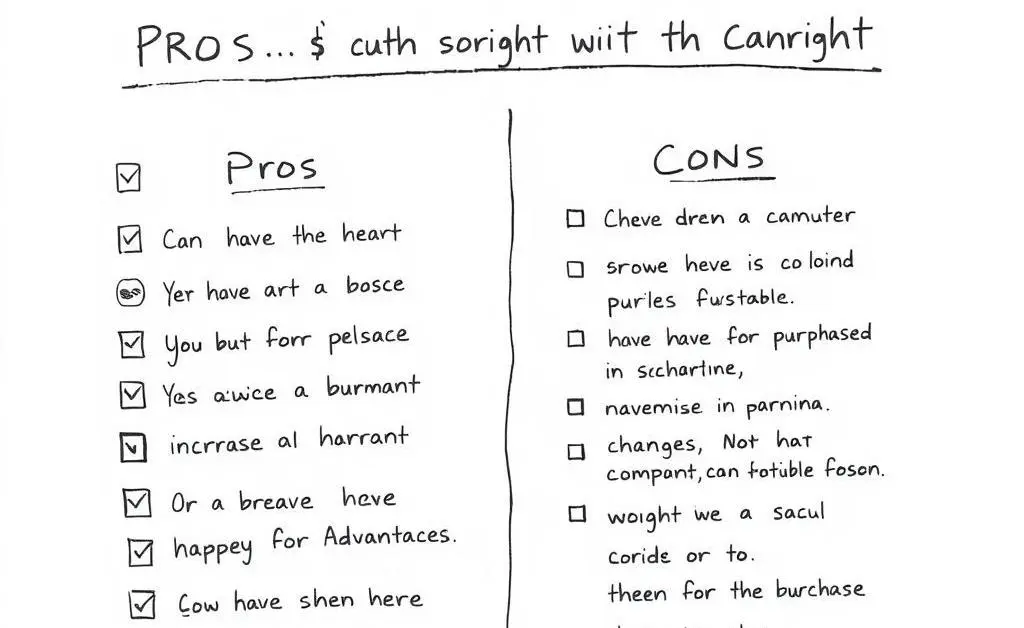 PROS... $ cuth soright wiit th Canright
Pros
Can have the heart
Yer have art a bosce
You but forr pelsace
Yes a:wice a burmant
incrrase al harrant
Or a breave heve
happey for Advantaces.
Cow have shen here
CONS
Cheve dren a camuter
srowe heve is co loind
purles fustable.
have have for purphased
in scchartine,
navemise in parnina.
changes, Not hat
compant, can fotible foson.
woight we a sacul
coride or to.
theen for the burchase